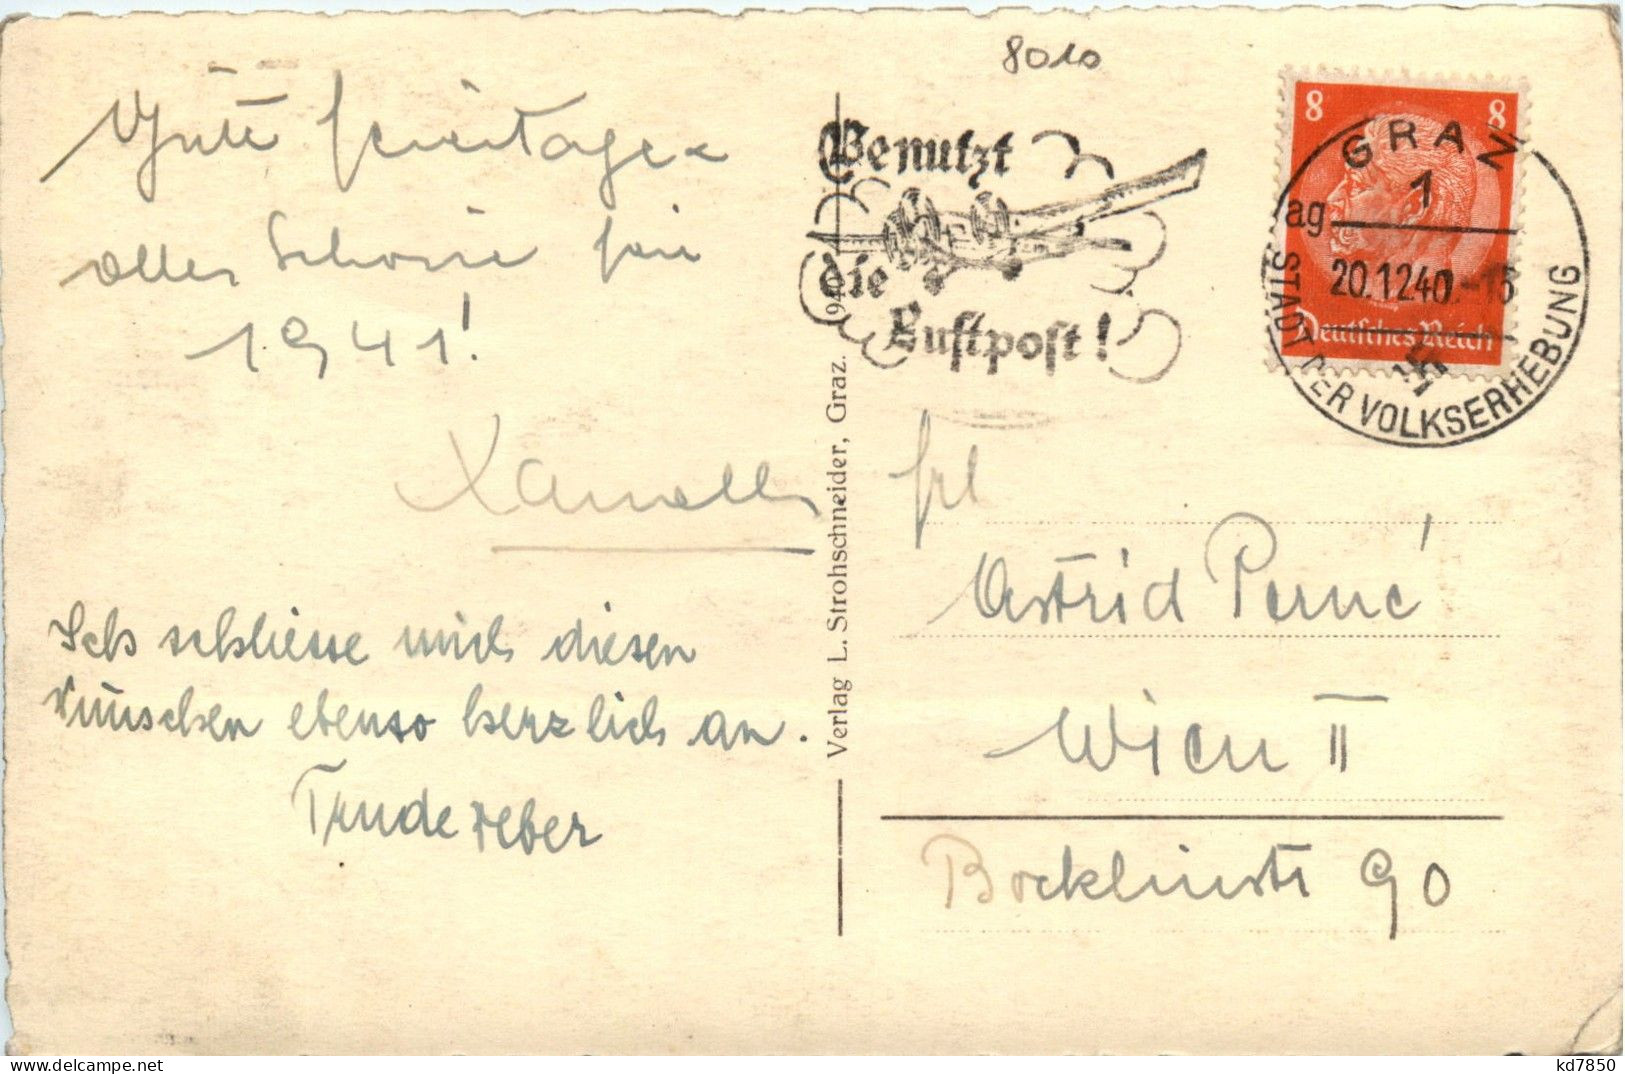 Gute Feiertage u
alles Schöne für
1941!
Ich schliesse mich diesen
Wünschen ebenso herzlich an.
Trude Weber
Verlag L. Strohschneider, Graz.
8010
Benutzt
die
Luftpost!
8 8
Deutsches Reich
GRAZ
1
ag
20.12.40
STADT DER VOLKSERHEBUNG
Frl
Astrid Perné
Wien II
Böcklinstr 90
www.delcampe.net
kd7850